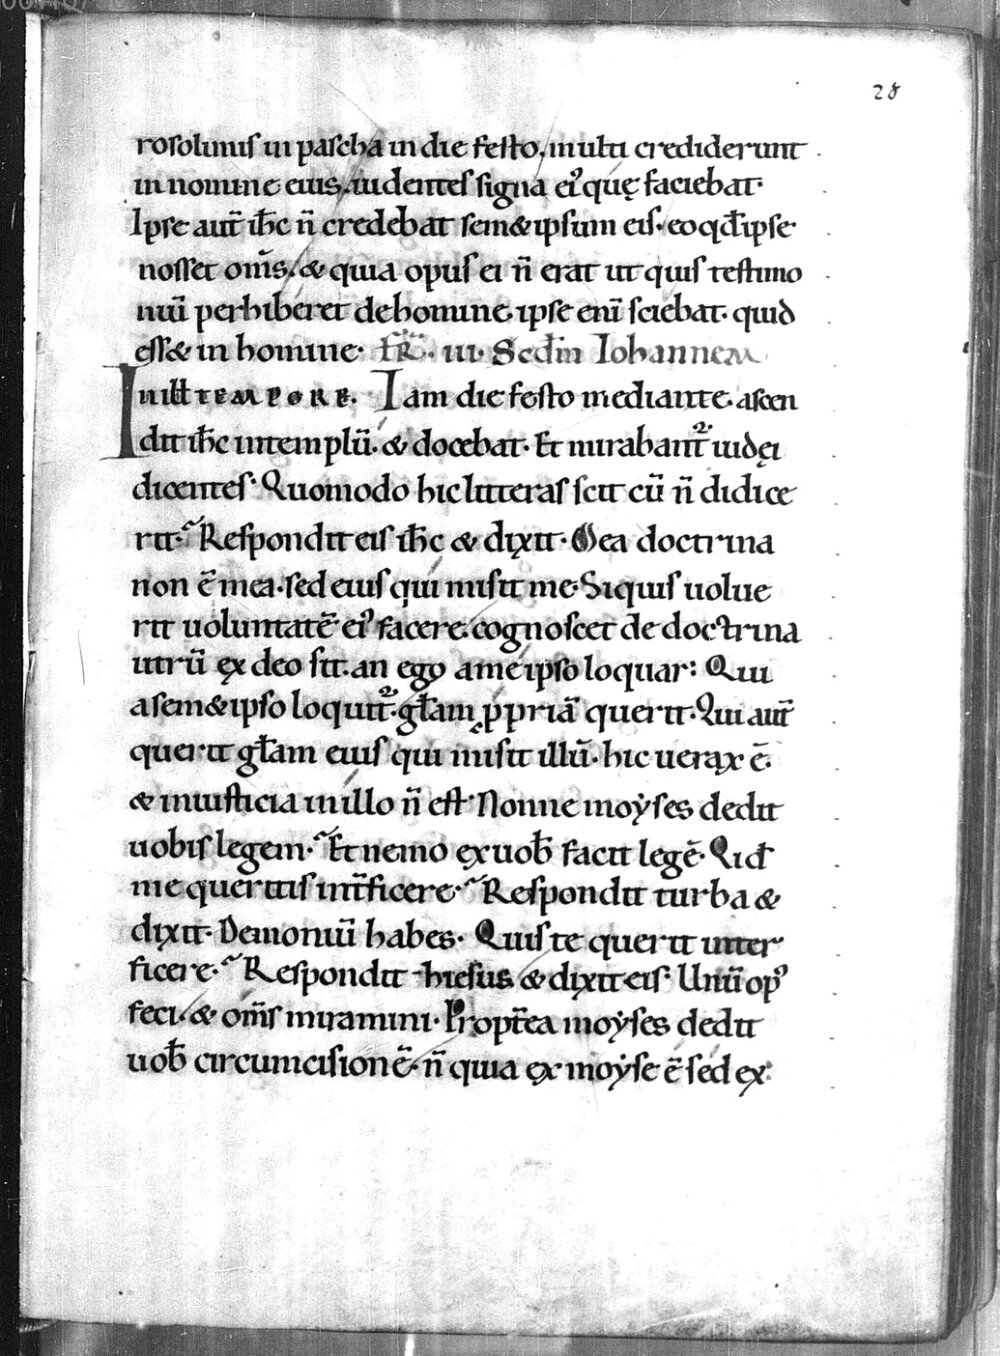 28
rosolimis in pascha in die festo, multi crediderunt
in nomine eius, uidentes signa ei᾽ quę faciebat·
Ipse aut̄ ih̄c n̄ credebat sem&ipsum eis· eo qđ ipse
nosset om̄s, & quia opus ei n̄ erat ut quis testimo
niū perhiberet de homine· ipse enī sciebat· quid
ess& in homine· FR̄· iii· Scđm Iohannem
In illt tempore. Iam die festo mediante· ascen
dit ih̄c in templū· & docebat· Et mirabant̄᾽ iudęi
dicentes· Quomodo hic litteras scit cū n̄ didice
rit· Respondit eis ih̄c & dixit· Mea doctrina
non ē mea· sed eius qui misit me· Siquis uolue
rit uoluntatē ei᾽ facere· cognoscet de doctrina
utrū ex deo sit· an ego ame ipso loquar: Qui
a sem&ipso loquit̄᾽· głam ꝓpriā querit· Qui aut̄
querit głam eius qui misit illū· hic uerax ē·
& iniusticia in illo n̄ est· Nonne moẏses dedit
uobis legem· Et nemo ex uoƀ facit legē· Qid
me queritis int̄ficere· Respondit turba &
dixit· Demoniū habes· Quis te querit inter
ficere· Respondit hiesus & dixit eis· Unū op᾽
feci· & om̄s miramini· Propt̄ea moẏses dedit
uoƀ circumcisionē· n̄ quia ex moẏse ē sed ex